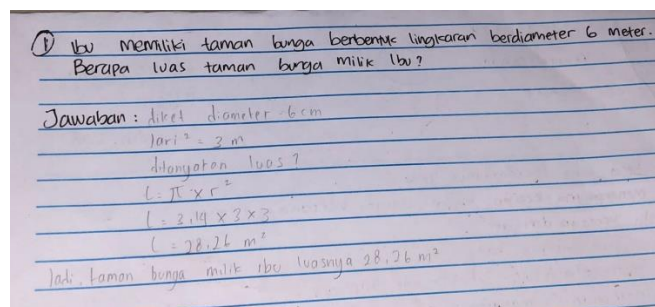 ① Ibu memiliki taman bunga berbentuk lingkaran berdiameter 6 meter.
Berapa luas taman bunga milik Ibu?
Jawaban : diket diameter 6 cm
Jari² = 3 m
ditanyakan luas ?
L = π x r²
L = 3,14 x 3 x 3
L = 28,26 m²
Jadi, taman bunga milik ibu luasnya 28,26 m²